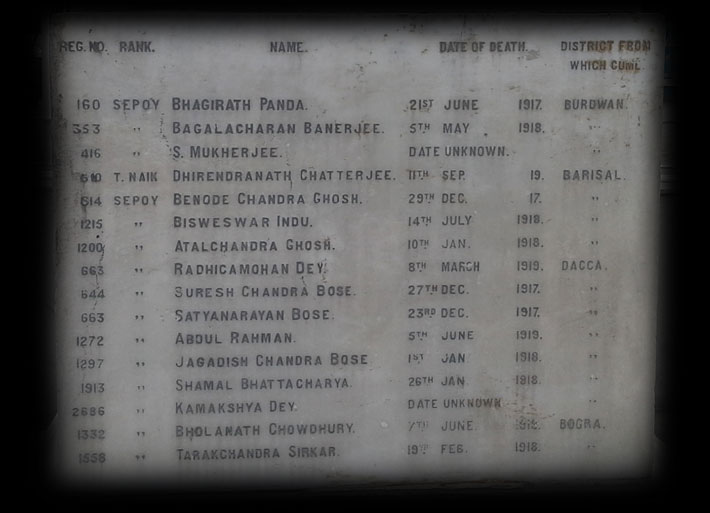 REG. NO. RANK. NAME. DATE OF DEATH. DISTRICT FROM
WHICH CUML
160 SEPOY BHAGIRATH PANDA. 21ST JUNE 1917. BURDWAN.
353 " BAGALACHARAN BANERJEE. 5TH MAY 1918. "
416 " S. MUKHERJEE. DATE UNKNOWN. "
610 T. NAIK DHIRENDRANATH CHATTERJEE. 11TH SEP. 19. BARISAL.
614 SEPOY BENODE CHANDRA GHOSH. 29TH DEC. 17. "
1215 " BISWESWAR INDU. 14TH JULY 1918. "
1200 " ATALCHANDRA GHOSH. 10TH JAN. 1918. "
663 " RADHICAMOHAN DEY. 8TH MARCH 1919. DACCA.
644 " SURESH CHANDRA BOSE. 27TH DEC. 1917. "
663 " SATYANARAYAN BOSE. 23RD DEC. 1917. "
1272 " ABDUL RAHMAN. 5TH JUNE 1919. "
1297 " JAGADISH CHANDRA BOSE. 1ST JAN 1918. "
1913 " SHAMAL BHATTACHARYA. 26TH JAN 1918. "
2686 " KAMAKSHYA DEY. DATE UNKNOWN "
1332 " BHOLANATH CHOWDHURY. 7TH JUNE. BOGRA.
1558 " TARAKCHANDRA SIRKAR. 19TH FEB. 1918. "